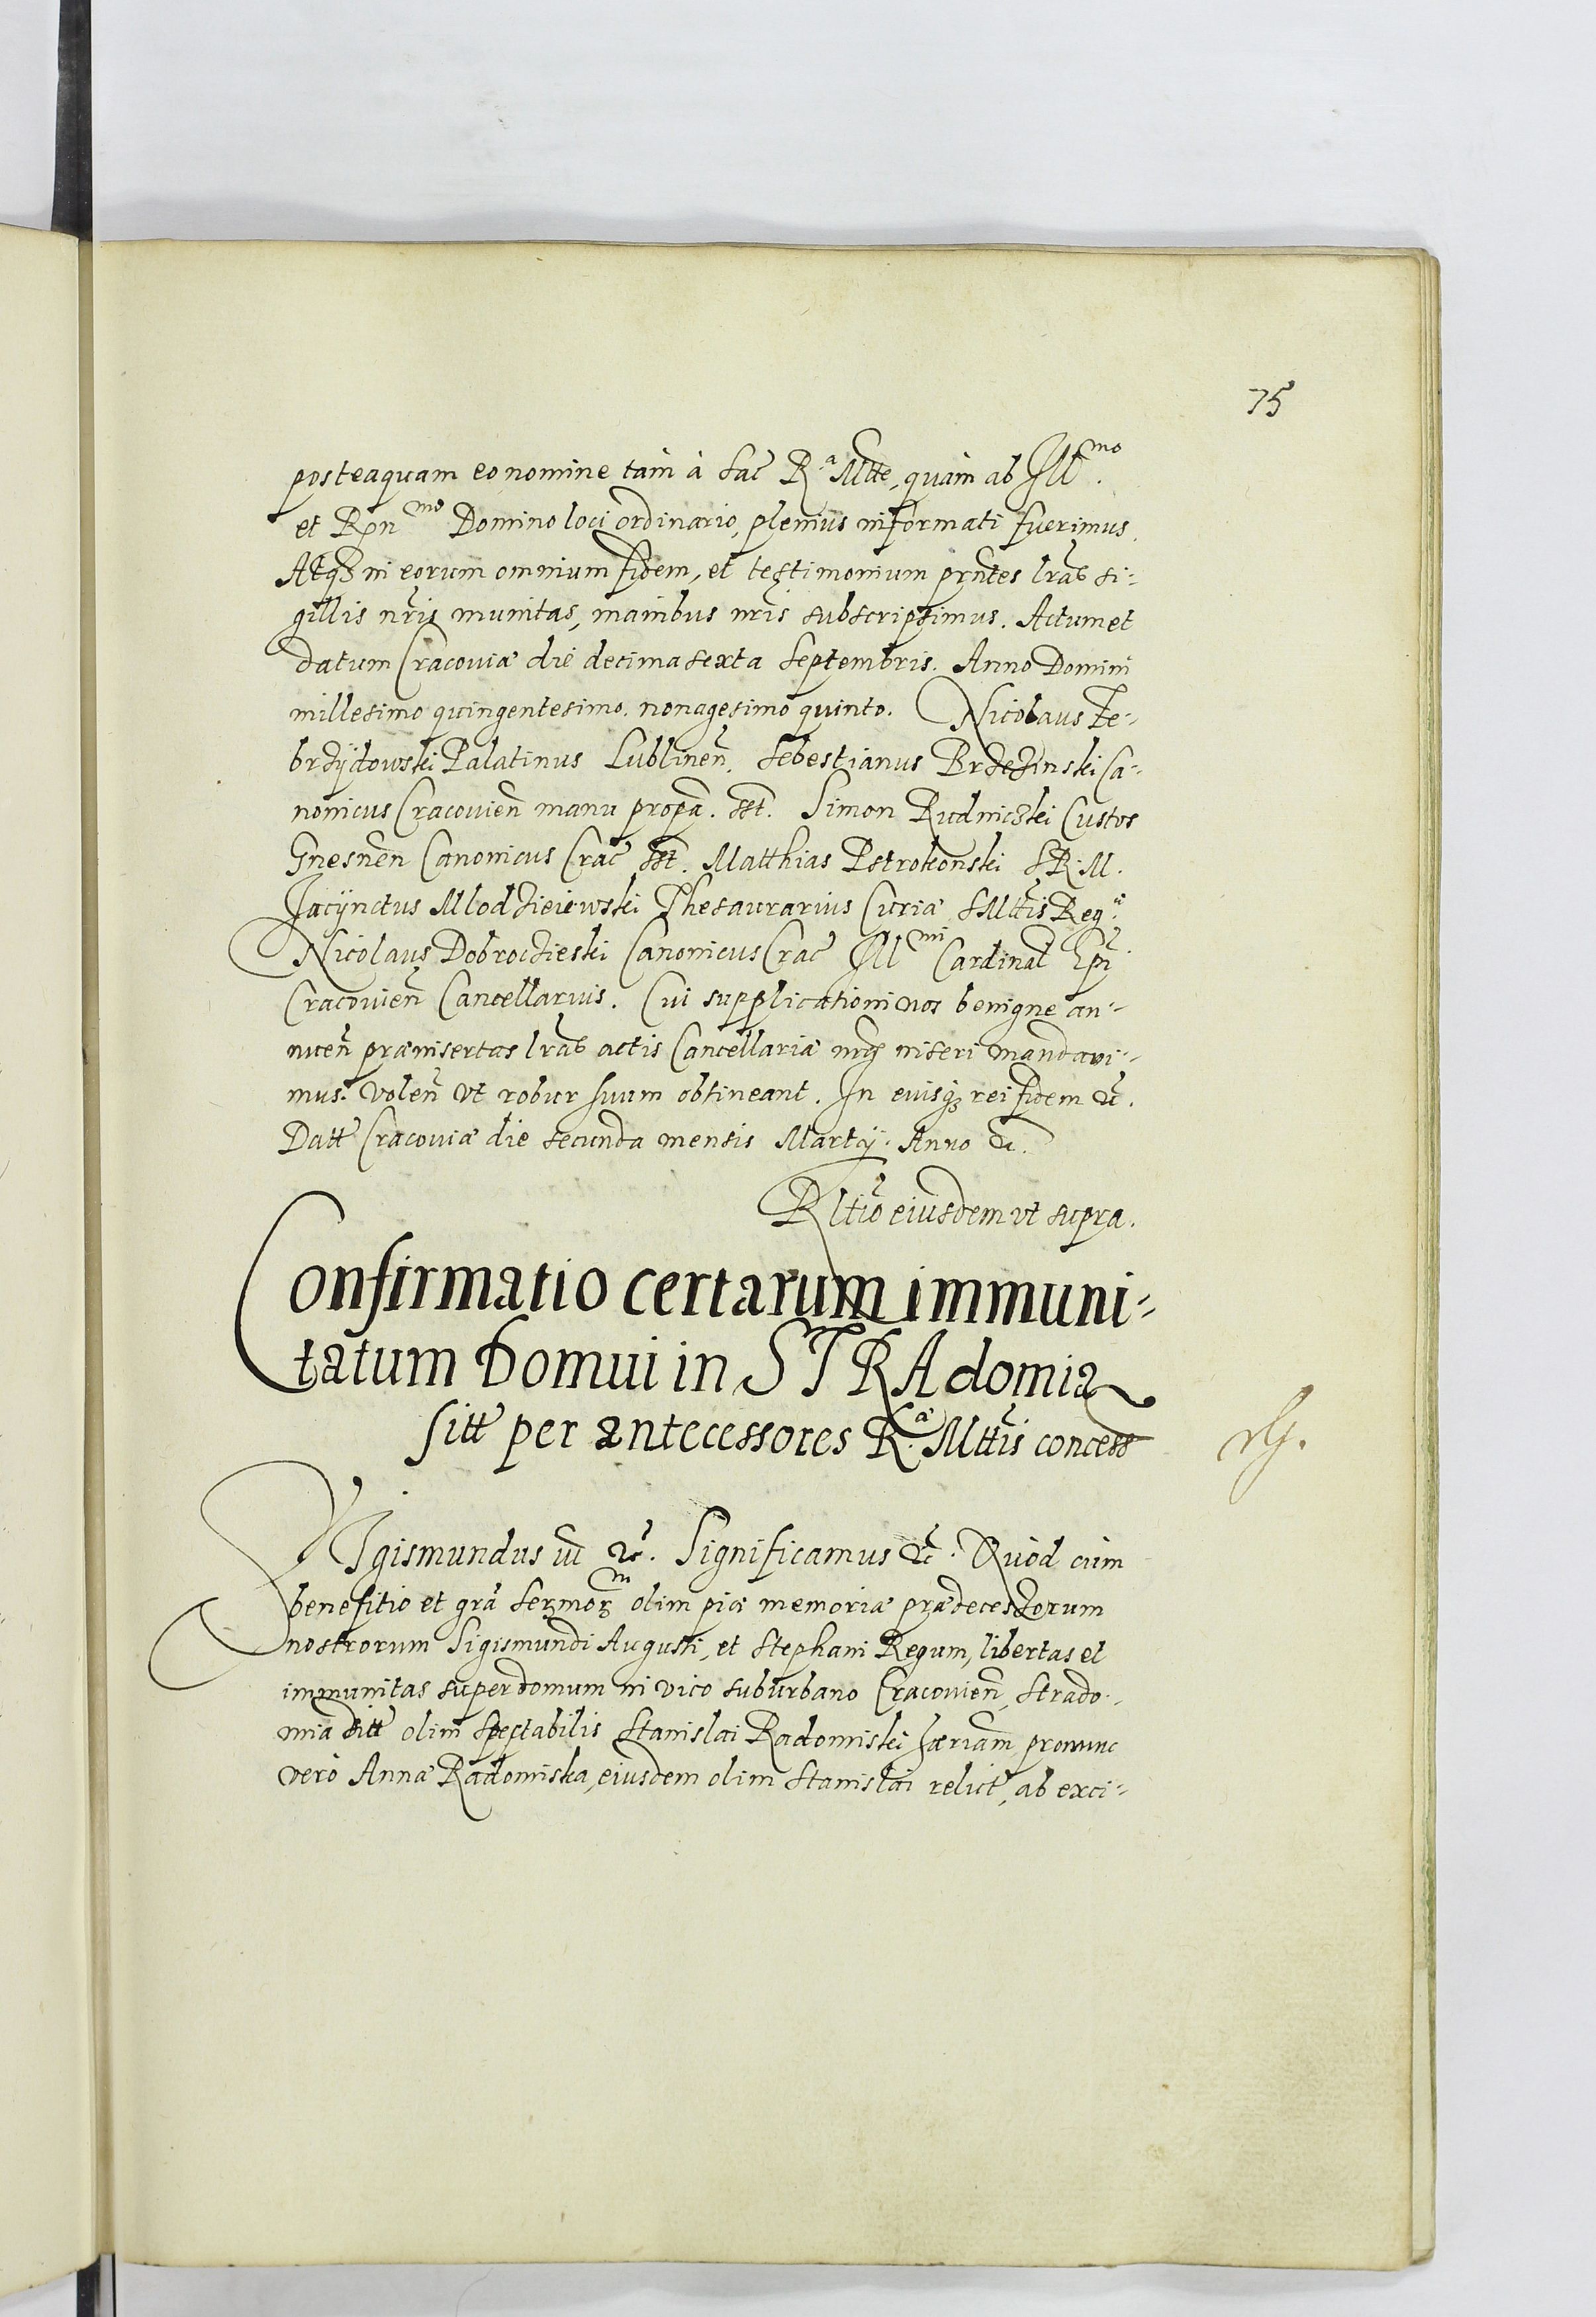 75
posteaquam eo nomine tam à Sac R.ᵃ Mtte, quàm ab Illᵐᵒ.
et Rṇᵐᵒ Domino loci ordinario, plenius informati fuerimus.
Atq3 in eorum omnium fidem, et testimonium prñtes lrãs si-
gillis nr̃is munitas, manibus nr̃is subscripsimus. Actum et
datum Cracoviæ die decima sexta Septembris. Anno Domini
millesimo quingentesimo nonagesimo quinto. Nicolaus Ze-
brzÿdowski Palatinus Lublineñ. Sebestianus Brzezinski Ca-
nonicus Cracovieñ manu propã. sst. Simon Rudniczki Custos
Gnesneñ Canonicus Crac̃ sst. Matthias Pstrokonski S.R.M.
Jacÿnctus Mlodzieiewski Thesaurarius Curiæ S Mttis Regᵃᵉ
Nicolaus Dobroczieski Canonicus Crac̃ Illᵐⁱ Cardinal Ep̃i
Cracovieñ Cancellarius. Cui supplicationi nos benigne an-
nueñ præinsertas lrãs actis Cancellariæ nr̃æ inseri mandavi-
mus. Voleñ vt robur suum obtineant. In cuius q3 rei fidem &c̃.
Datt Cracoviæ die secunda mensis Martÿ. Anno &c.
Rltiõ eiusdem vt supra.
Confirmatio certarum immuni-
tatum Domui in STRAdomia
sitt per antecessores R.ᵃ Mttis concess
Sigismundus iii &c̃. Significamus &c̃. Quòd cùm
benefitio et grã Serᵐor̃ olim piæ memoriæ prædecessorum
nostrorum Sigismundi Augusti, et Stephani Regum, libertas et
immunitas super domum in vico suburbano Cracovieñ, Strado-
mia sitt olim Spectabilis Stanislai Radomiski pro nunc
verò Annæ Radomiska, eiusdem olim Stanislai relict, ab exci-